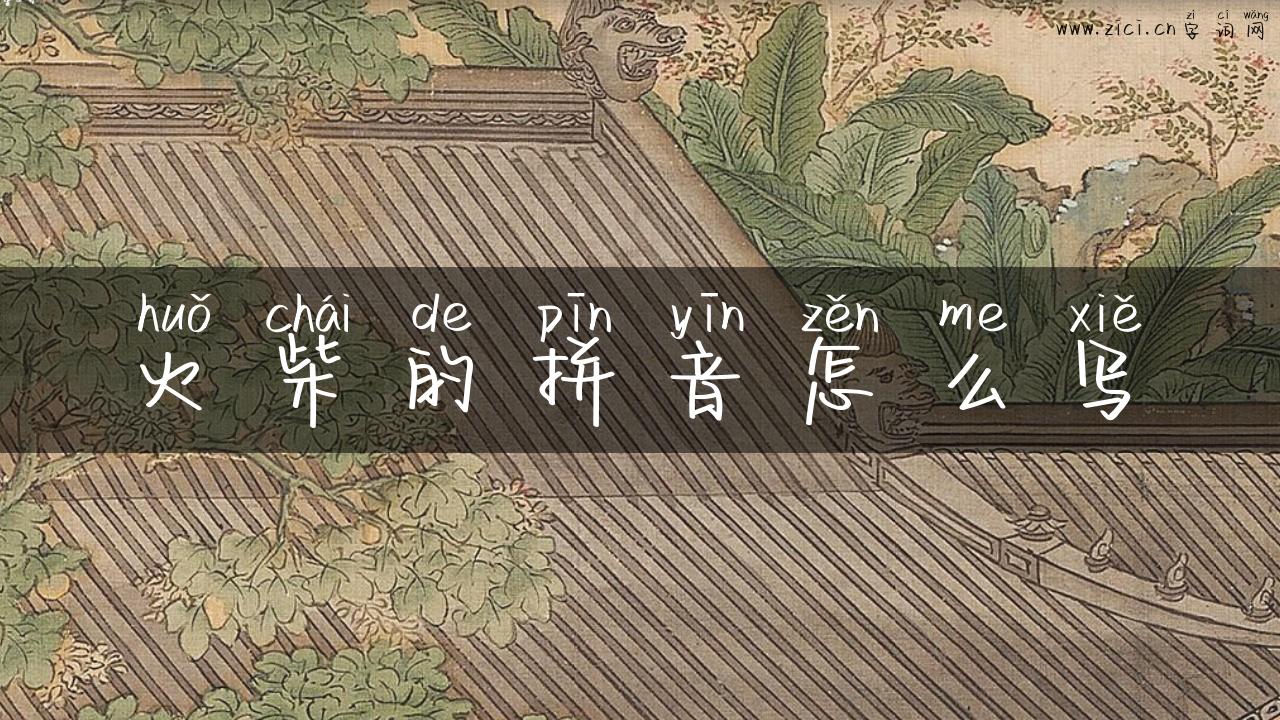 www.zici.cn 字词网
zì cí wǎng
huǒ chái de pīn yīn zěn me xiě
火柴的拼音怎么写